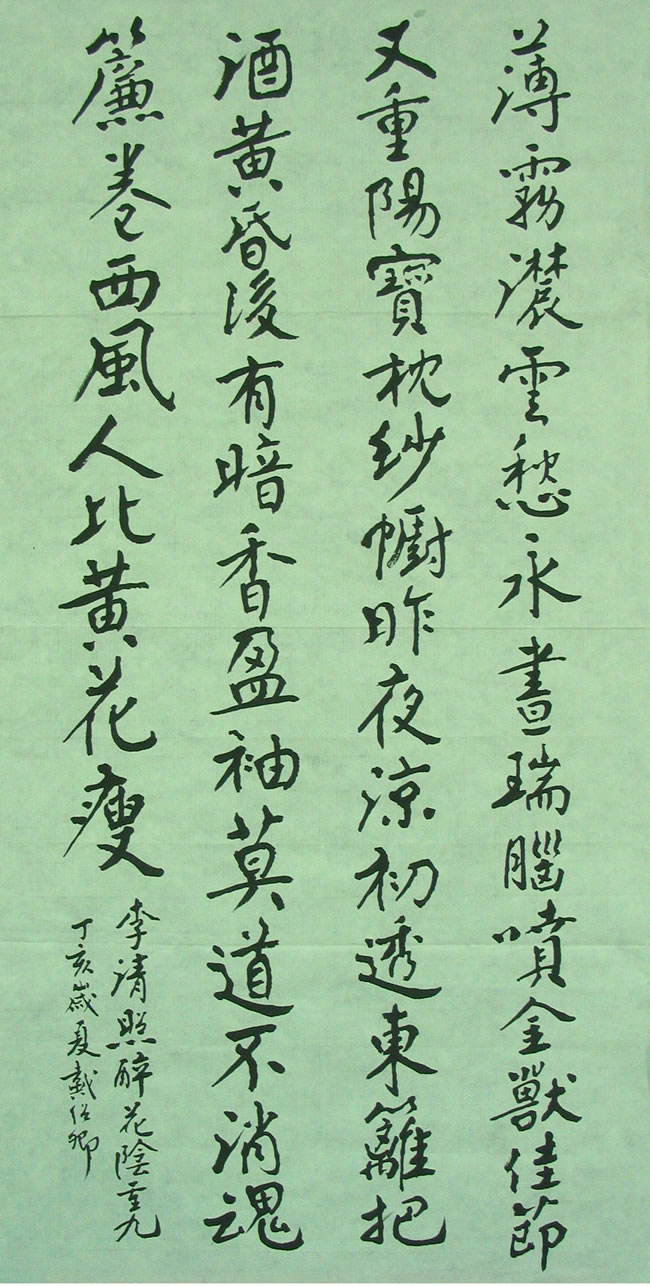 薄霧濃雲愁永晝瑞腦噴金獸佳節
又重陽寶枕紗幮昨夜涼初透東籬把
酒黃昏後有暗香盈袖莫道不消魂
簾卷西風人比黃花瘦
李清照醉花陰重九
丁亥歲夏戴卿